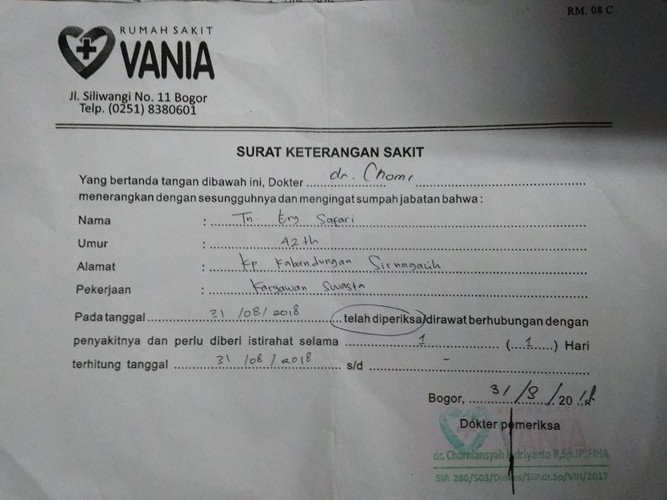 RM. 08 C
RUMAH SAKIT
VANIA
Jl. Siliwangi No. 11 Bogor
Telp. (0251) 8380601
SURAT KETERANGAN SAKIT
Yang bertanda tangan dibawah ini, Dokter dr. Chomi
menerangkan dengan sesungguhnya dan mengingat sumpah jabatan bahwa :
Nama : Tn. Ery Safari
Umur : 42 th
Alamat : Kp Kabandungan Sirnagalih
Pekerjaan : Karyawan Swasta
Pada tanggal 31/08/2018 telah diperiksa/dirawat berhubungan dengan
penyakitnya dan perlu diberi istirahat selama 1 (1) Hari
terhitung tanggal 31/08/2018 s/d -
Bogor, 31/8/2018
Dokter pemeriksa
VANIA
dr. Chomiansyah Indriyanto R,Sp.JP,FIHA
SIP. 280/503/Dinkes/SIP.dr.Sp/VIII/2017